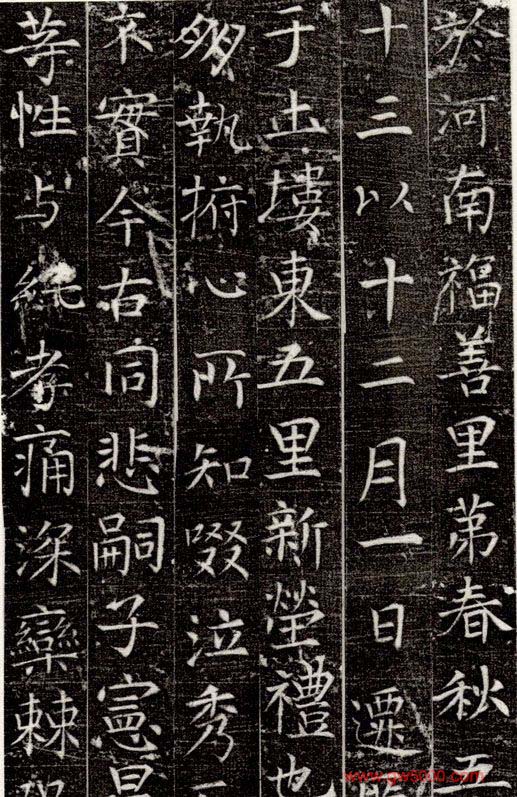 於河南福善里苐春秋五
十三以十二月一日遷
于土塿東五里新塋禮也
執拊心所知啜泣秀
不實今古同悲嗣子憲
等性与純孝痛深欒棘
www.gw8000.com